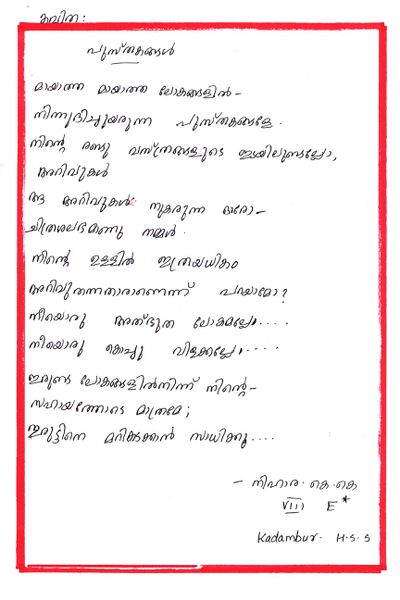 കവിത:
പുസ്തകങ്ങൾ
മായാത്ത മായാത്ത ലോകങ്ങളിൽ-
നിന്നുദിച്ചുയരുന്ന പുസ്തകങ്ങളേ.
നിന്റെ രണ്ടു വസ്ത്രങ്ങളുടെ ഇടയിലുണ്ടല്ലോ,
അറിവുകൾ
ആ അറിവുകൾ നുകരുന്ന ഓരോ-
ചിത്രശലഭമാണു നമ്മൾ.
നിന്റെ ഉള്ളിൽ ഇത്രയധികം
അറിവുതന്നതാരാണെന്ന് പറയാമോ?
നീയൊരു അത്ഭുത ലോകമല്ലോ....
നീയൊരു കൊച്ചു വിളക്കല്ലോ.....
ഇരുണ്ട ലോകങ്ങളിൽനിന്ന് നിന്റെ-
സഹായത്തോടെ മാത്രമേ;
ഇരുട്ടിനെ മറികടക്കാൻ സാധിക്കൂ....
- നിഹാര. കെ. കെ
VIII E*
Kadambur. H.S.S